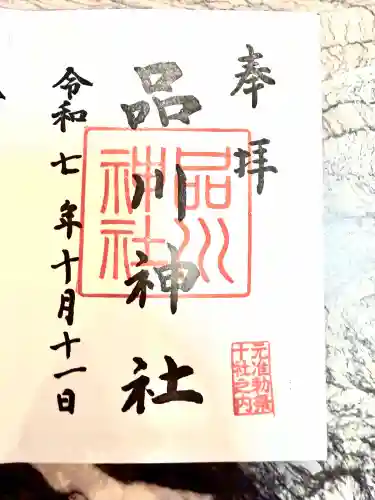 奉拝
品川神社
品川
神社
元准勅祭
十社之内
令和七年十月十一日